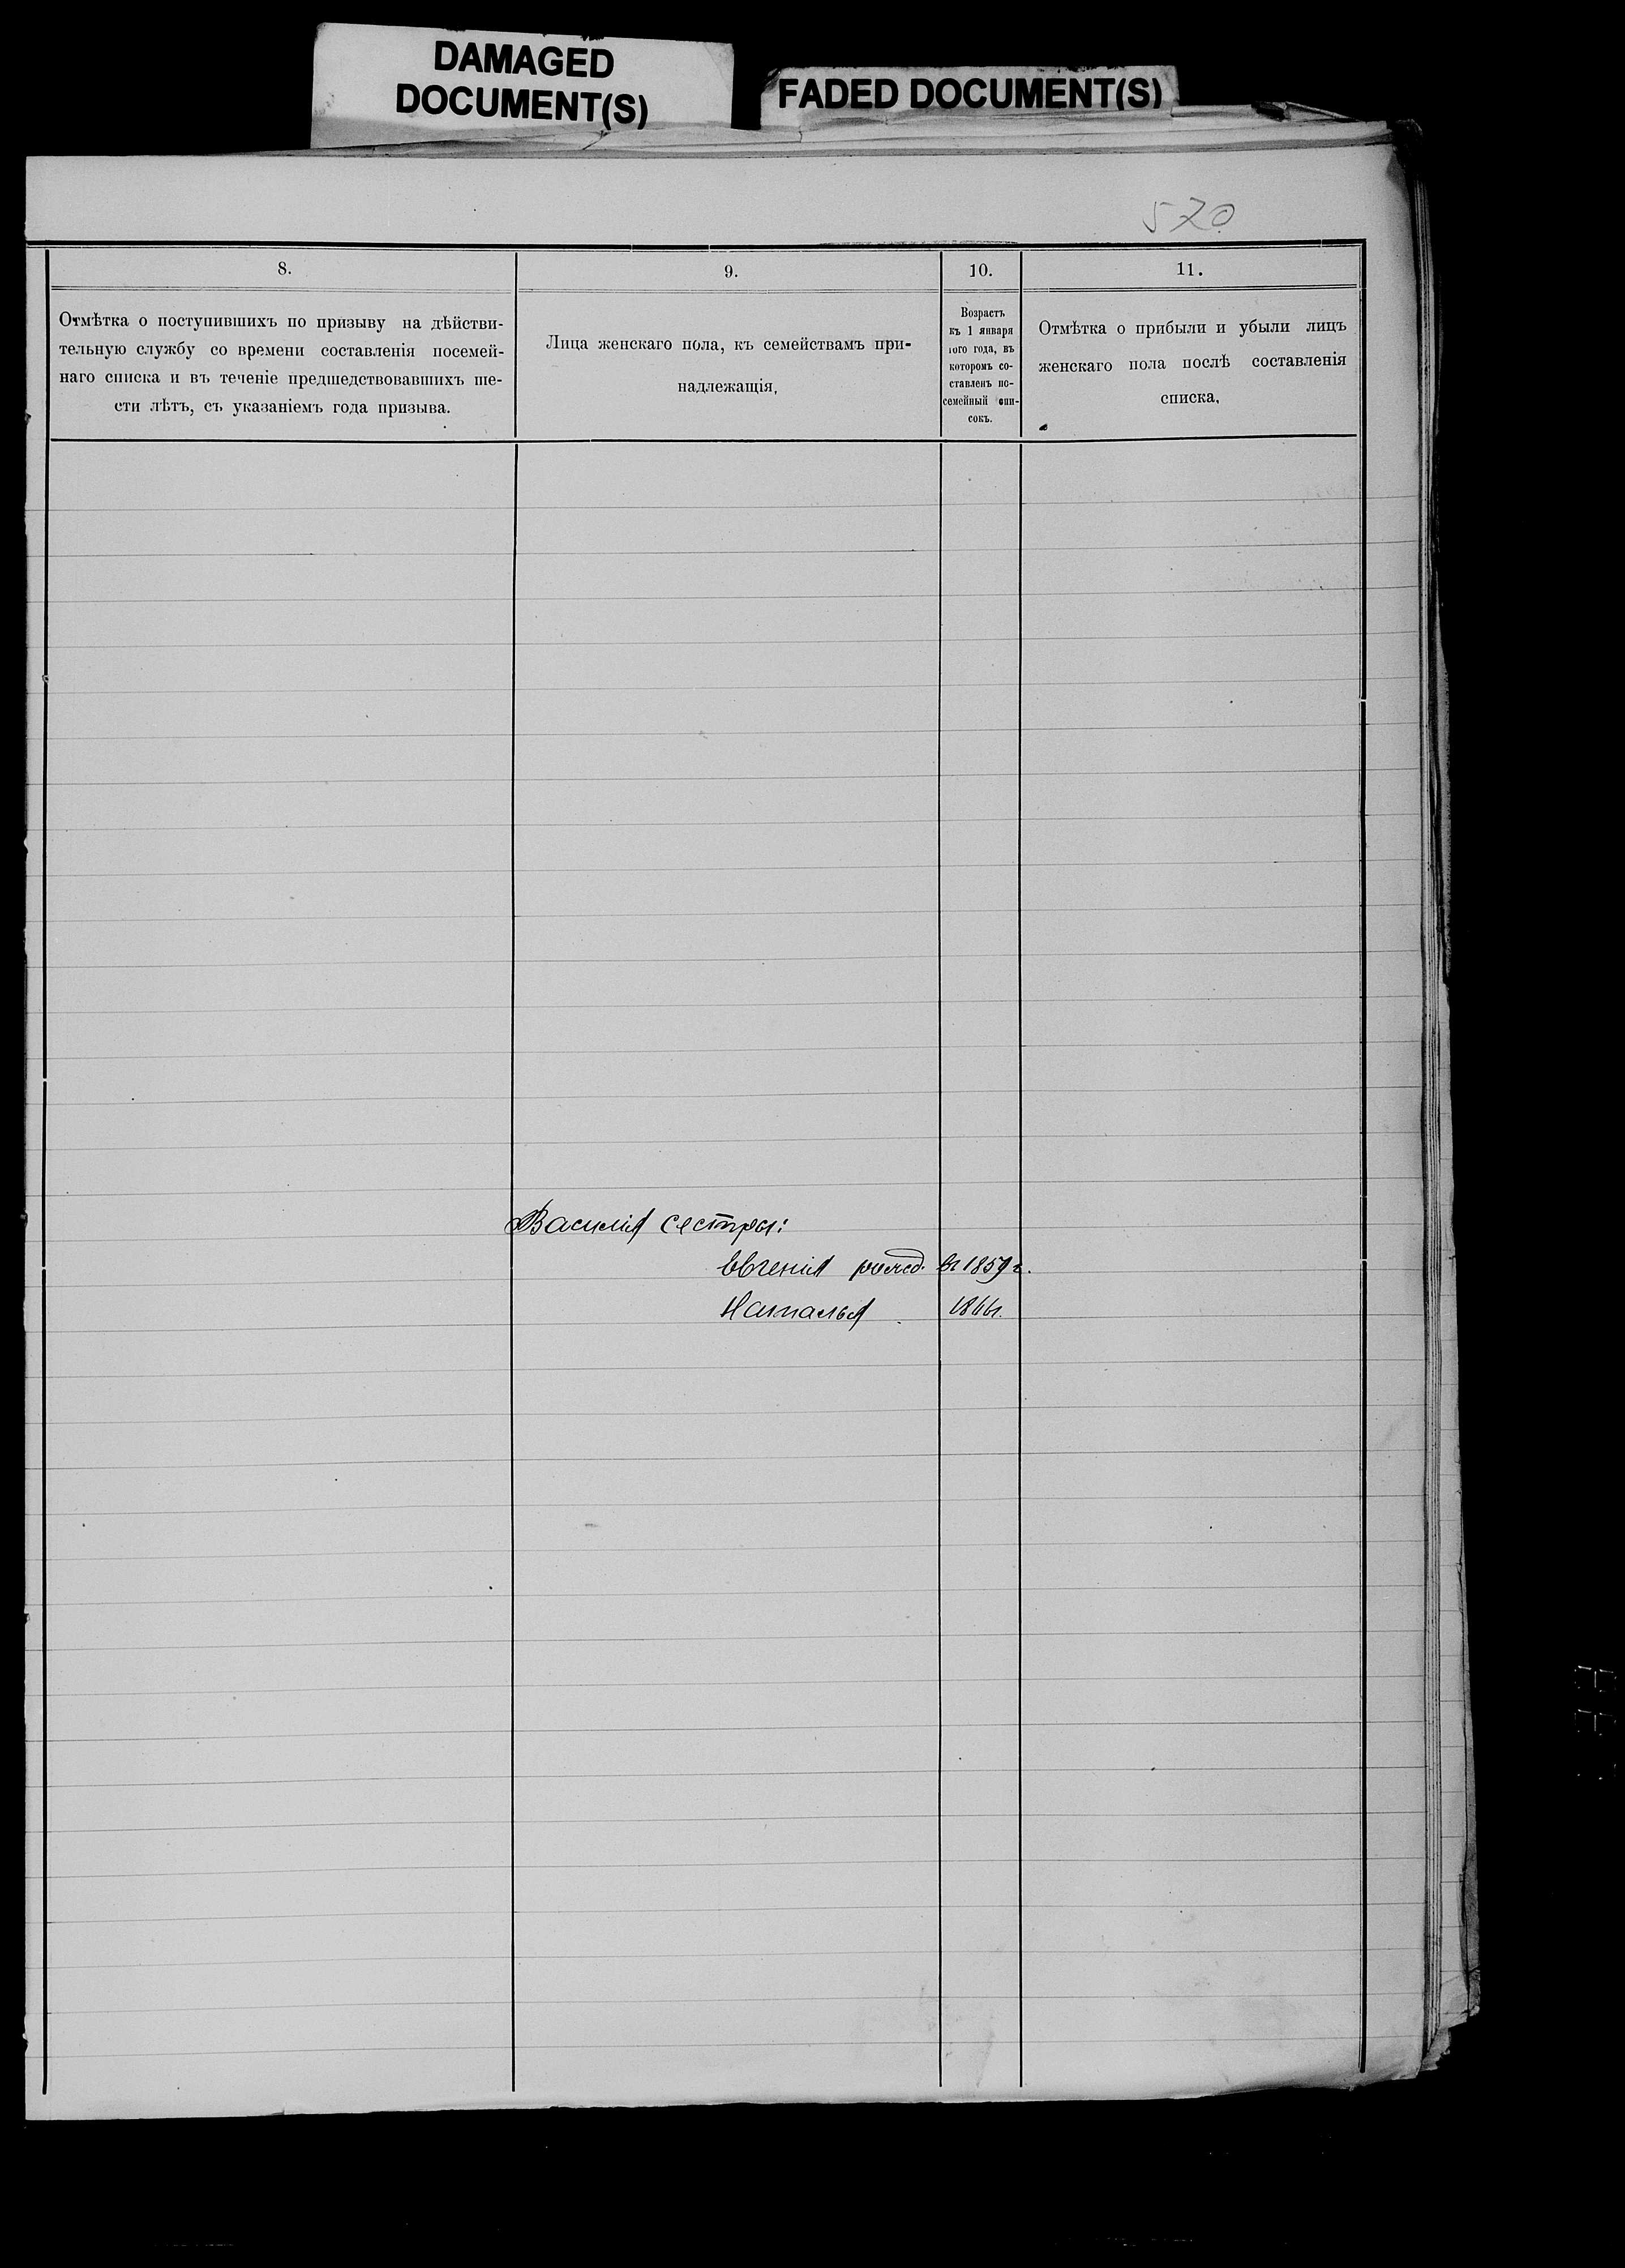 DAMAGED
DOCUMENT(S)
FADED DOCUMENT(S)
570
8.
Отмѣтка о поступившихъ по призыву на дѣйстви-
тельную службу со времени составленія посемей-
наго списка и въ теченіе предшедствовавшихъ ше-
сти лѣтъ, съ указаніемъ года призыва.
9.
Лица женскаго пола, къ семействамъ при-
надлежащія,
10.
Возрастъ
къ 1 января
того года, въ
которомъ со-
ставленъ по-
семейный спи-
сокъ.
11.
Отмѣтка о прибыли и убыли лицъ
женскаго пола послѣ составленія
списка,
Василія сестры:
Евгенія рожд. въ 1859 г.
Наталья 1866г.